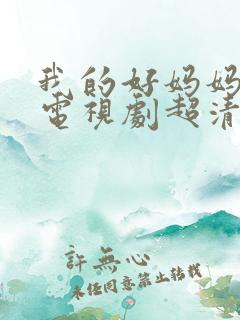 我的好妈妈
電視劇超清
許無心
未经同意禁止转载